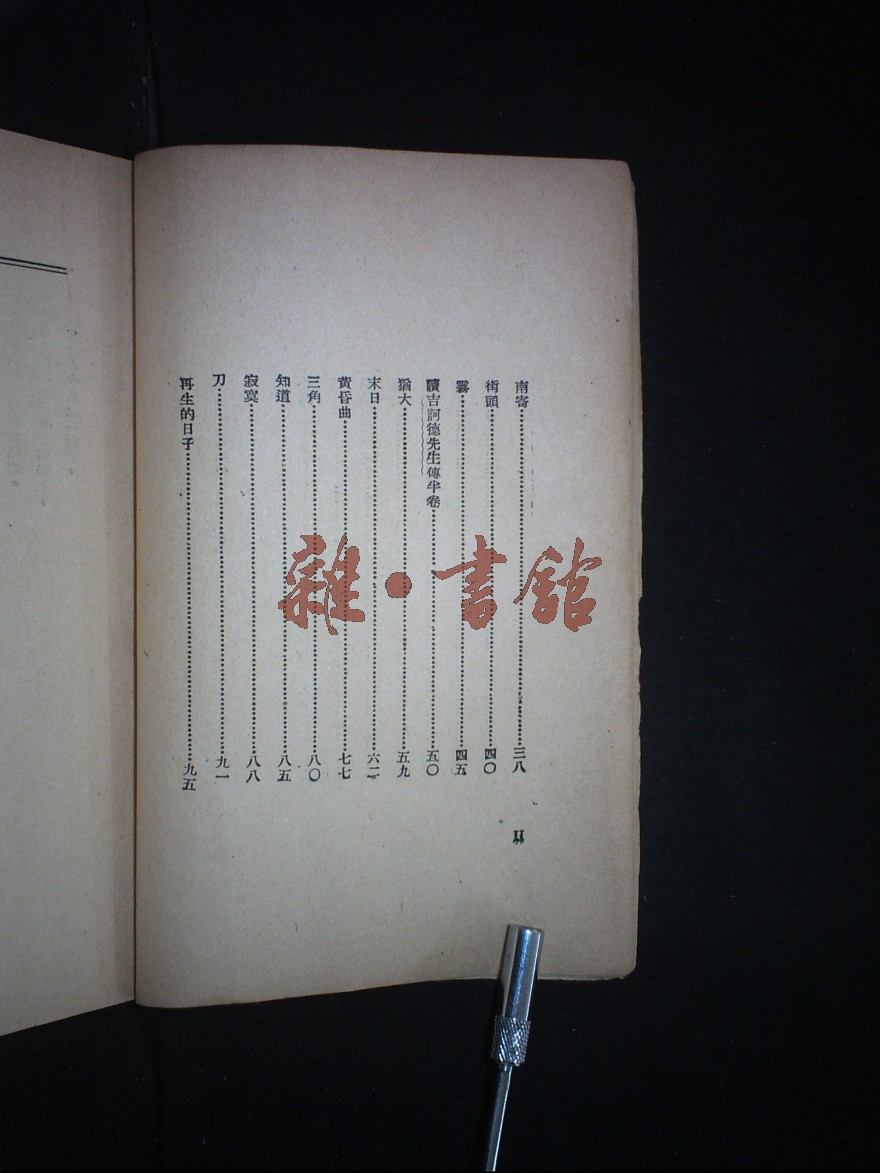 南寄……三八
街頭……四〇
霧……四五
讀吉訶德先生傳半卷……五〇
猶大……五九
末日……六二
黃昏曲……七七
三角……八〇
知道……八五
寂寞……八八
刀……九一
再生的日子……九五
II
雜·書館